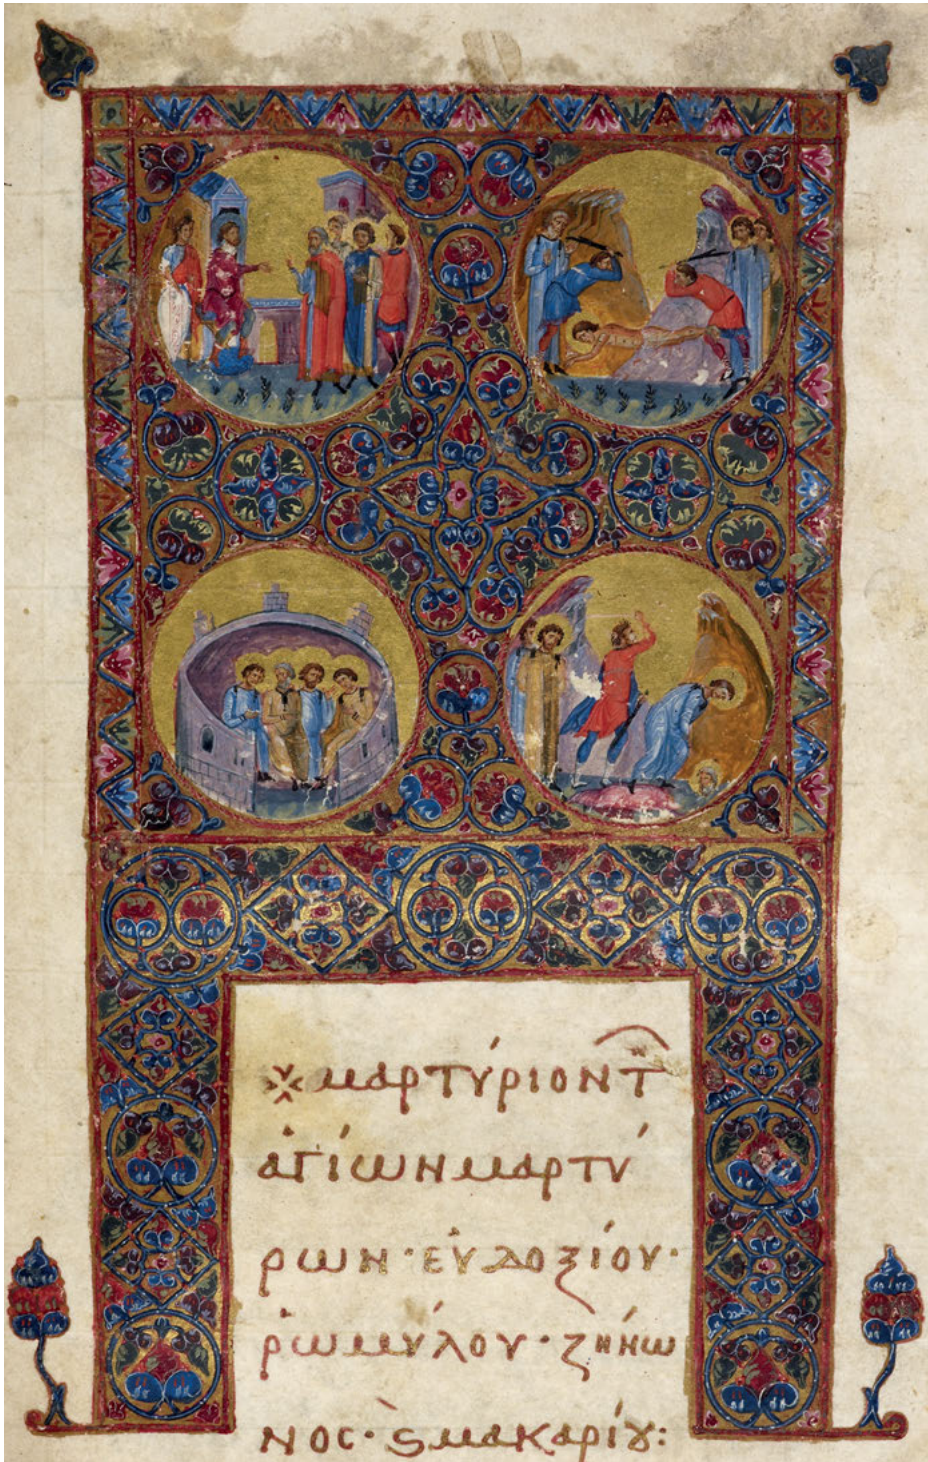 μαρτύριον τῶν
ἁγίων μαρτύ
ρων· εὐδοξίου·
ῥωμύλου· ζήνω
νος· ϗ̀ μακαρίȣ: